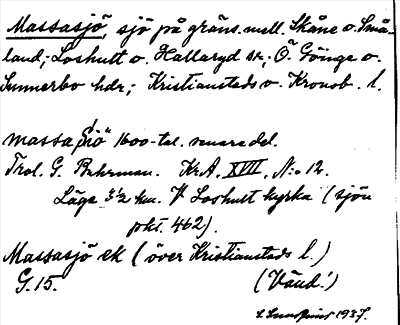 Massasjö, sjö på gräns. mell. Skåne o. Små-
land; Loshult o. Hallaryd sr; Ö. Göinge o.
Sunnerbo hdr; Kristianstads o. Kronob. l.
massa siö" 1600-tal. senare del.
Trol. G. Buhrman. Kr. A. XVII, N:o 12.
Läge 3½ km. V Loshult kyrka (sjön
pkt. 462).
Massasjö ek (över Kristianstads l.)
G. 15. (Vånd!)
S. Lundquist 1937.